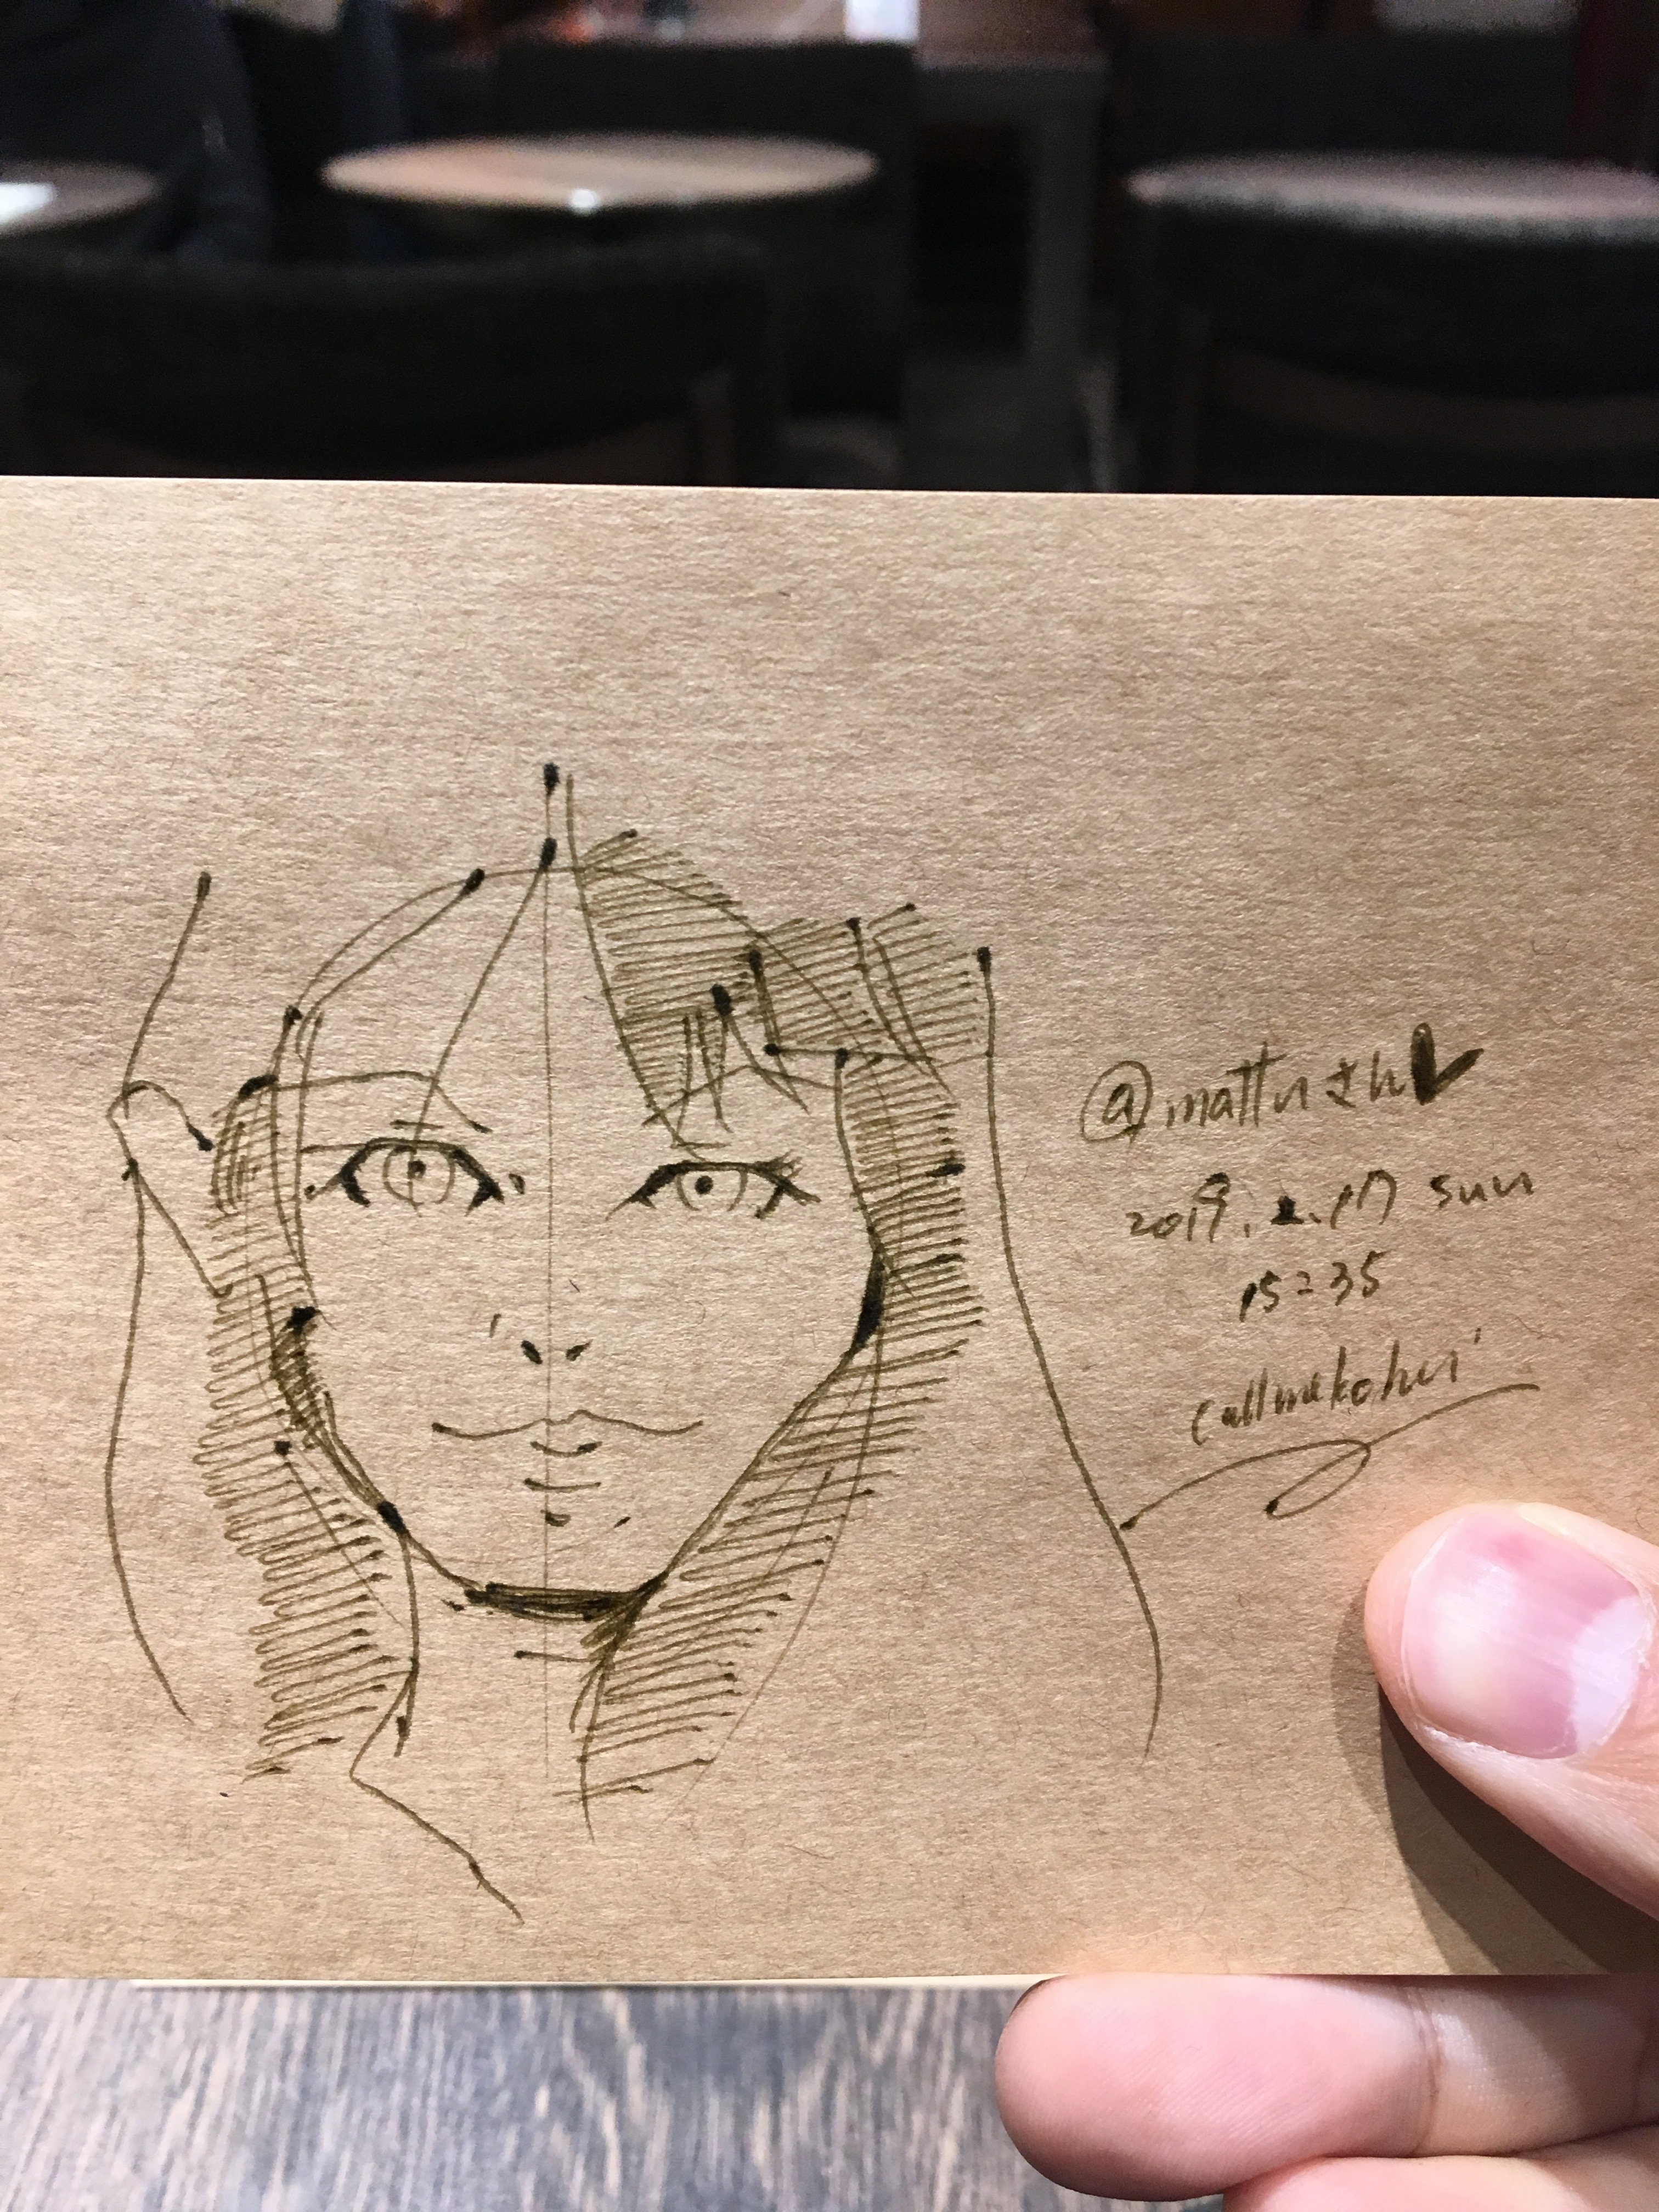 @mattnさん♥
2019.2.17 sun
15:35
callmekohei